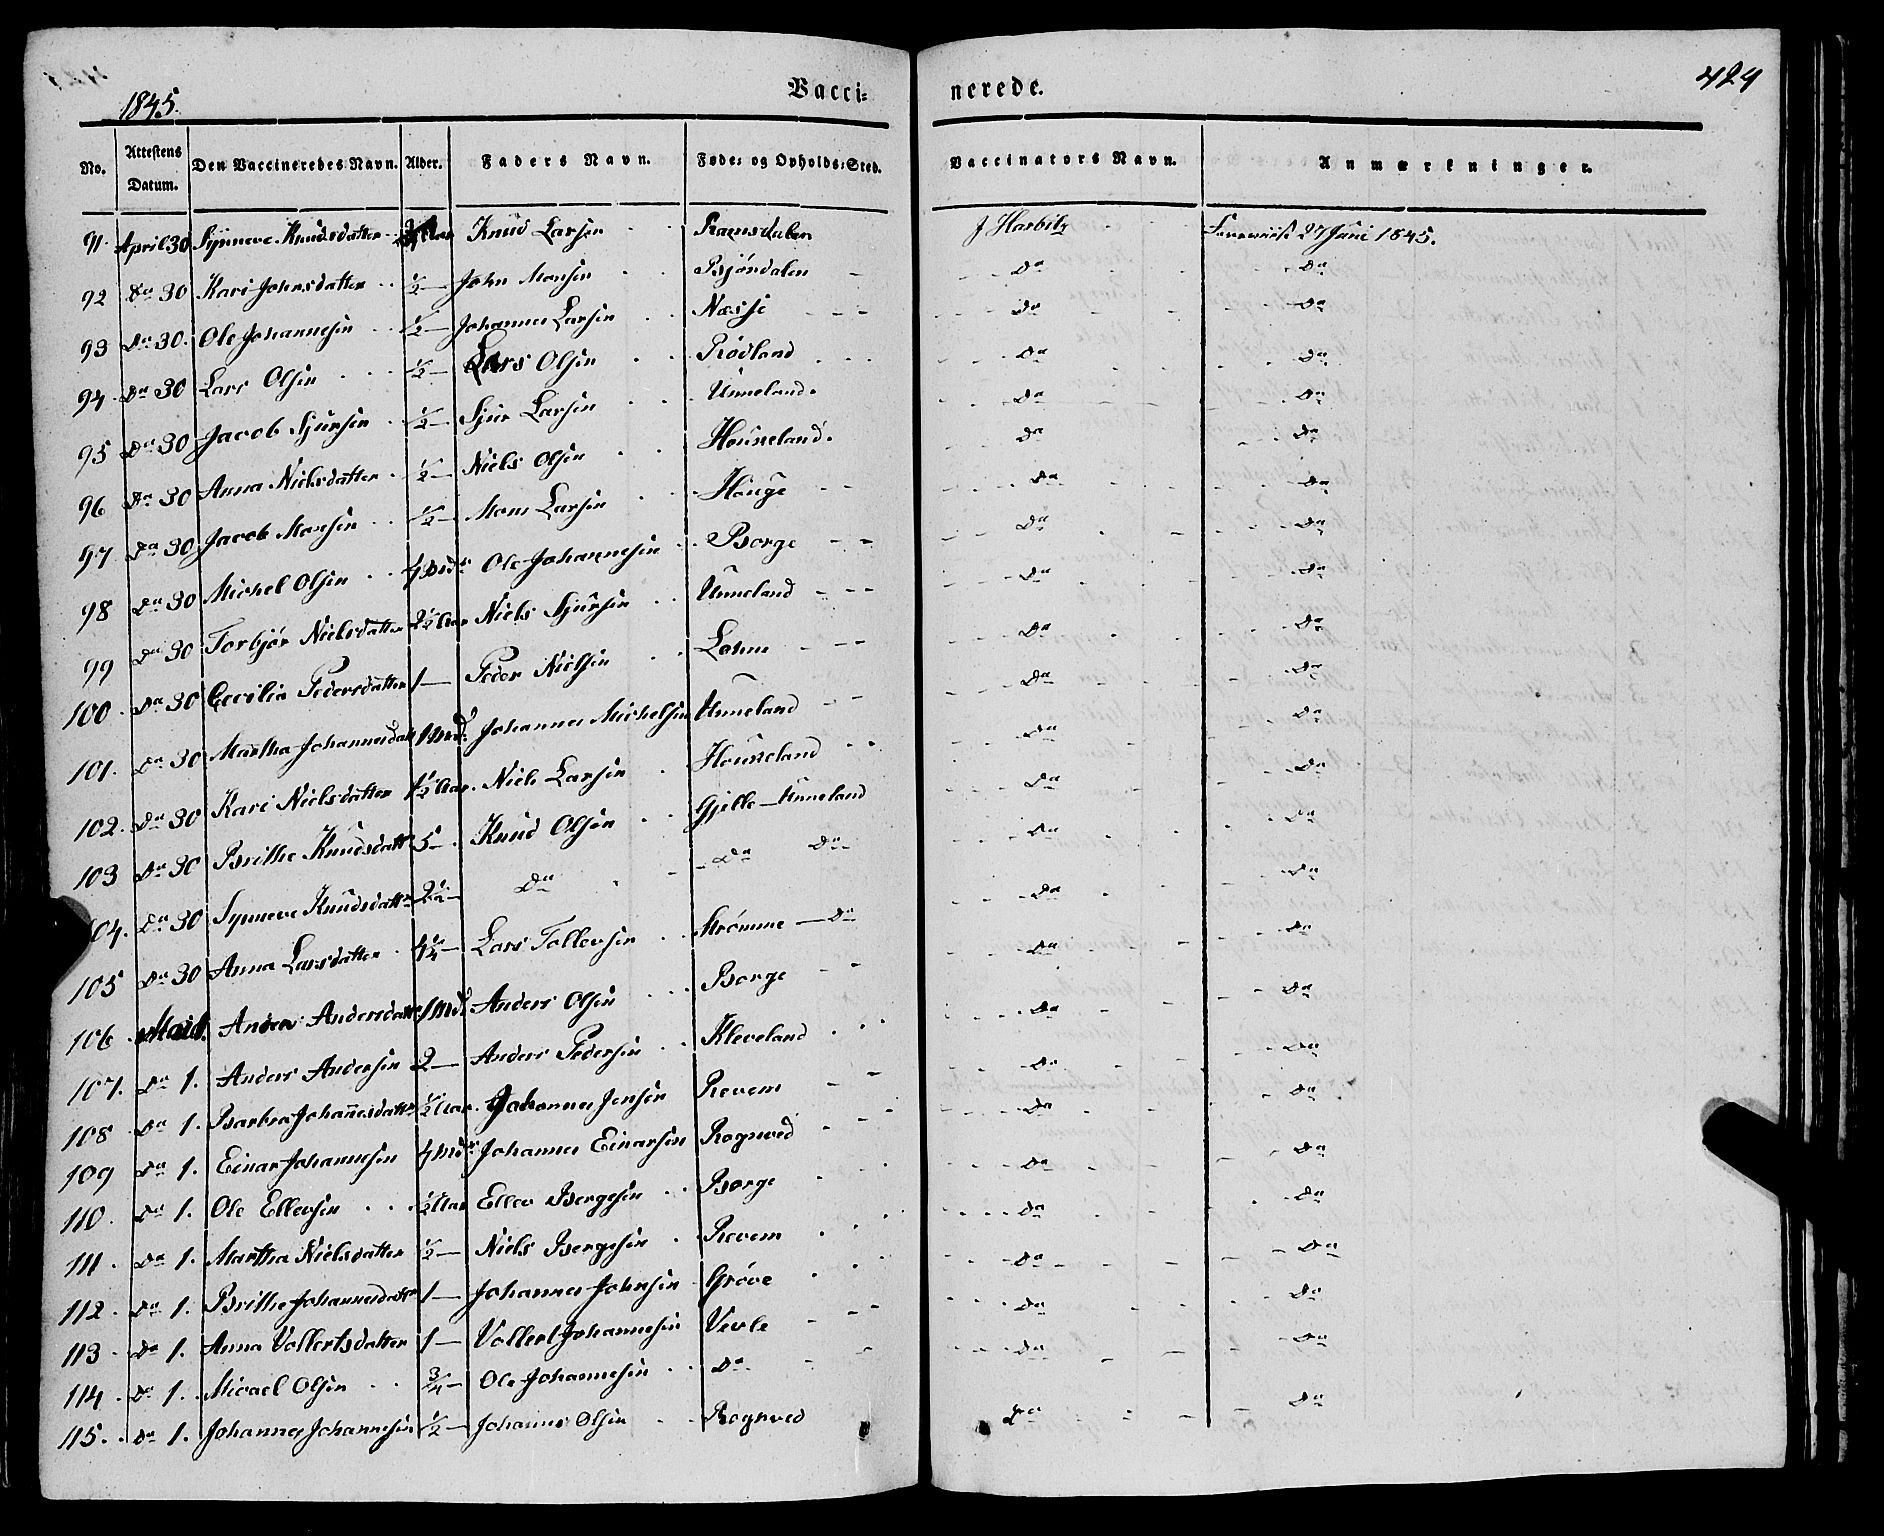 1845. Vacci= nerede. 424
No. Attestens Datum. Den Vaccineredes Navn. Alder. Faders Navn. Føde= og Opholds=Sted. Vaccinators Navn. Anmærkninger.
91. April 30 Synneve Knudsdatter Aar Knud Larsen J Harbitz 27 Juni 1845.
92 Do 30 Kari Johnsdatter ½ — John Monsen Bjørndalen Do Do
93 Do 30. Ole Johannesen ½ — Johannes Larsen Næsse Do Do
94 Do 30 Lars Olsen ½ — Lars Olsen Rødland Do Do
95 Do 30 Jacob Sjursen ½ — Sjur Larsen Unneland. Do Do
96 Do 30 Anna Nielsdatter ½ — Niels Olsen Houneland. Do Do
97 Do 30 Jacob Monsen ½ — Mons Larsen Houge Do Do
98 Do 30 Michel Olsen Md. Ole Johannesen Borge Do Do
99 Do 30 Torbjør Nielsdatter 2½ Aar Niels Sjursen Unneland Do Do
100 Do 30 Cecilia Pedersdatter 1 — Peder Nielsen Do Do
101. Do 30 Martha Johannesdatt Md. Johannes Michelsen Unneland Do Do
102. Do 30 Kari Nielsdatter 1½ Aar. Niels Larsen Houneland Do Do
103 Do 30 Brithe Knudsdatt 5 — Knud Olsen Gjelle — Unneland Do Do
104. Do 30 Synneve Knudsdattr 2½ — Do Do Do Do Do
105 Do 30 Anna Larsdatter 4¼ — Lars Tollevsen Strømme — Do Do Do
106 Mai 1. Anna Andersdatt Md. Anders Olsen Borge Do Do
107. Do 1. Anders Andersen 2 — Anders Pedersen Kleveland Do Do
108 Do 1. Barbra Johañesdattr ½ Aar. Johannes Jensen Revem Do Do
109 Do 1. Einar Johannesen Md. Johannes Einarsen Rognved Do Do
110. Do 1. Ole Ellevsen ½ Aar Ellev Børgesen Borge Do Do
111. Do 1. Martha Nielsdatter ½ — Niels Børgesen Revem Do Do
112. Do 1. Brithe Johannesdattr 1 — Johannes Johnsen Grøve Do Do
113. Do 1. Anna Vollertsdatter 1 — Vollert Johannesen Vevle Do Do
114. Do 1. Micael Olsen ¾ — Ole Johannesen Do.
115. Do 1. Johannes Johannesen ½ — Johannes Olsen Rognved Do Do